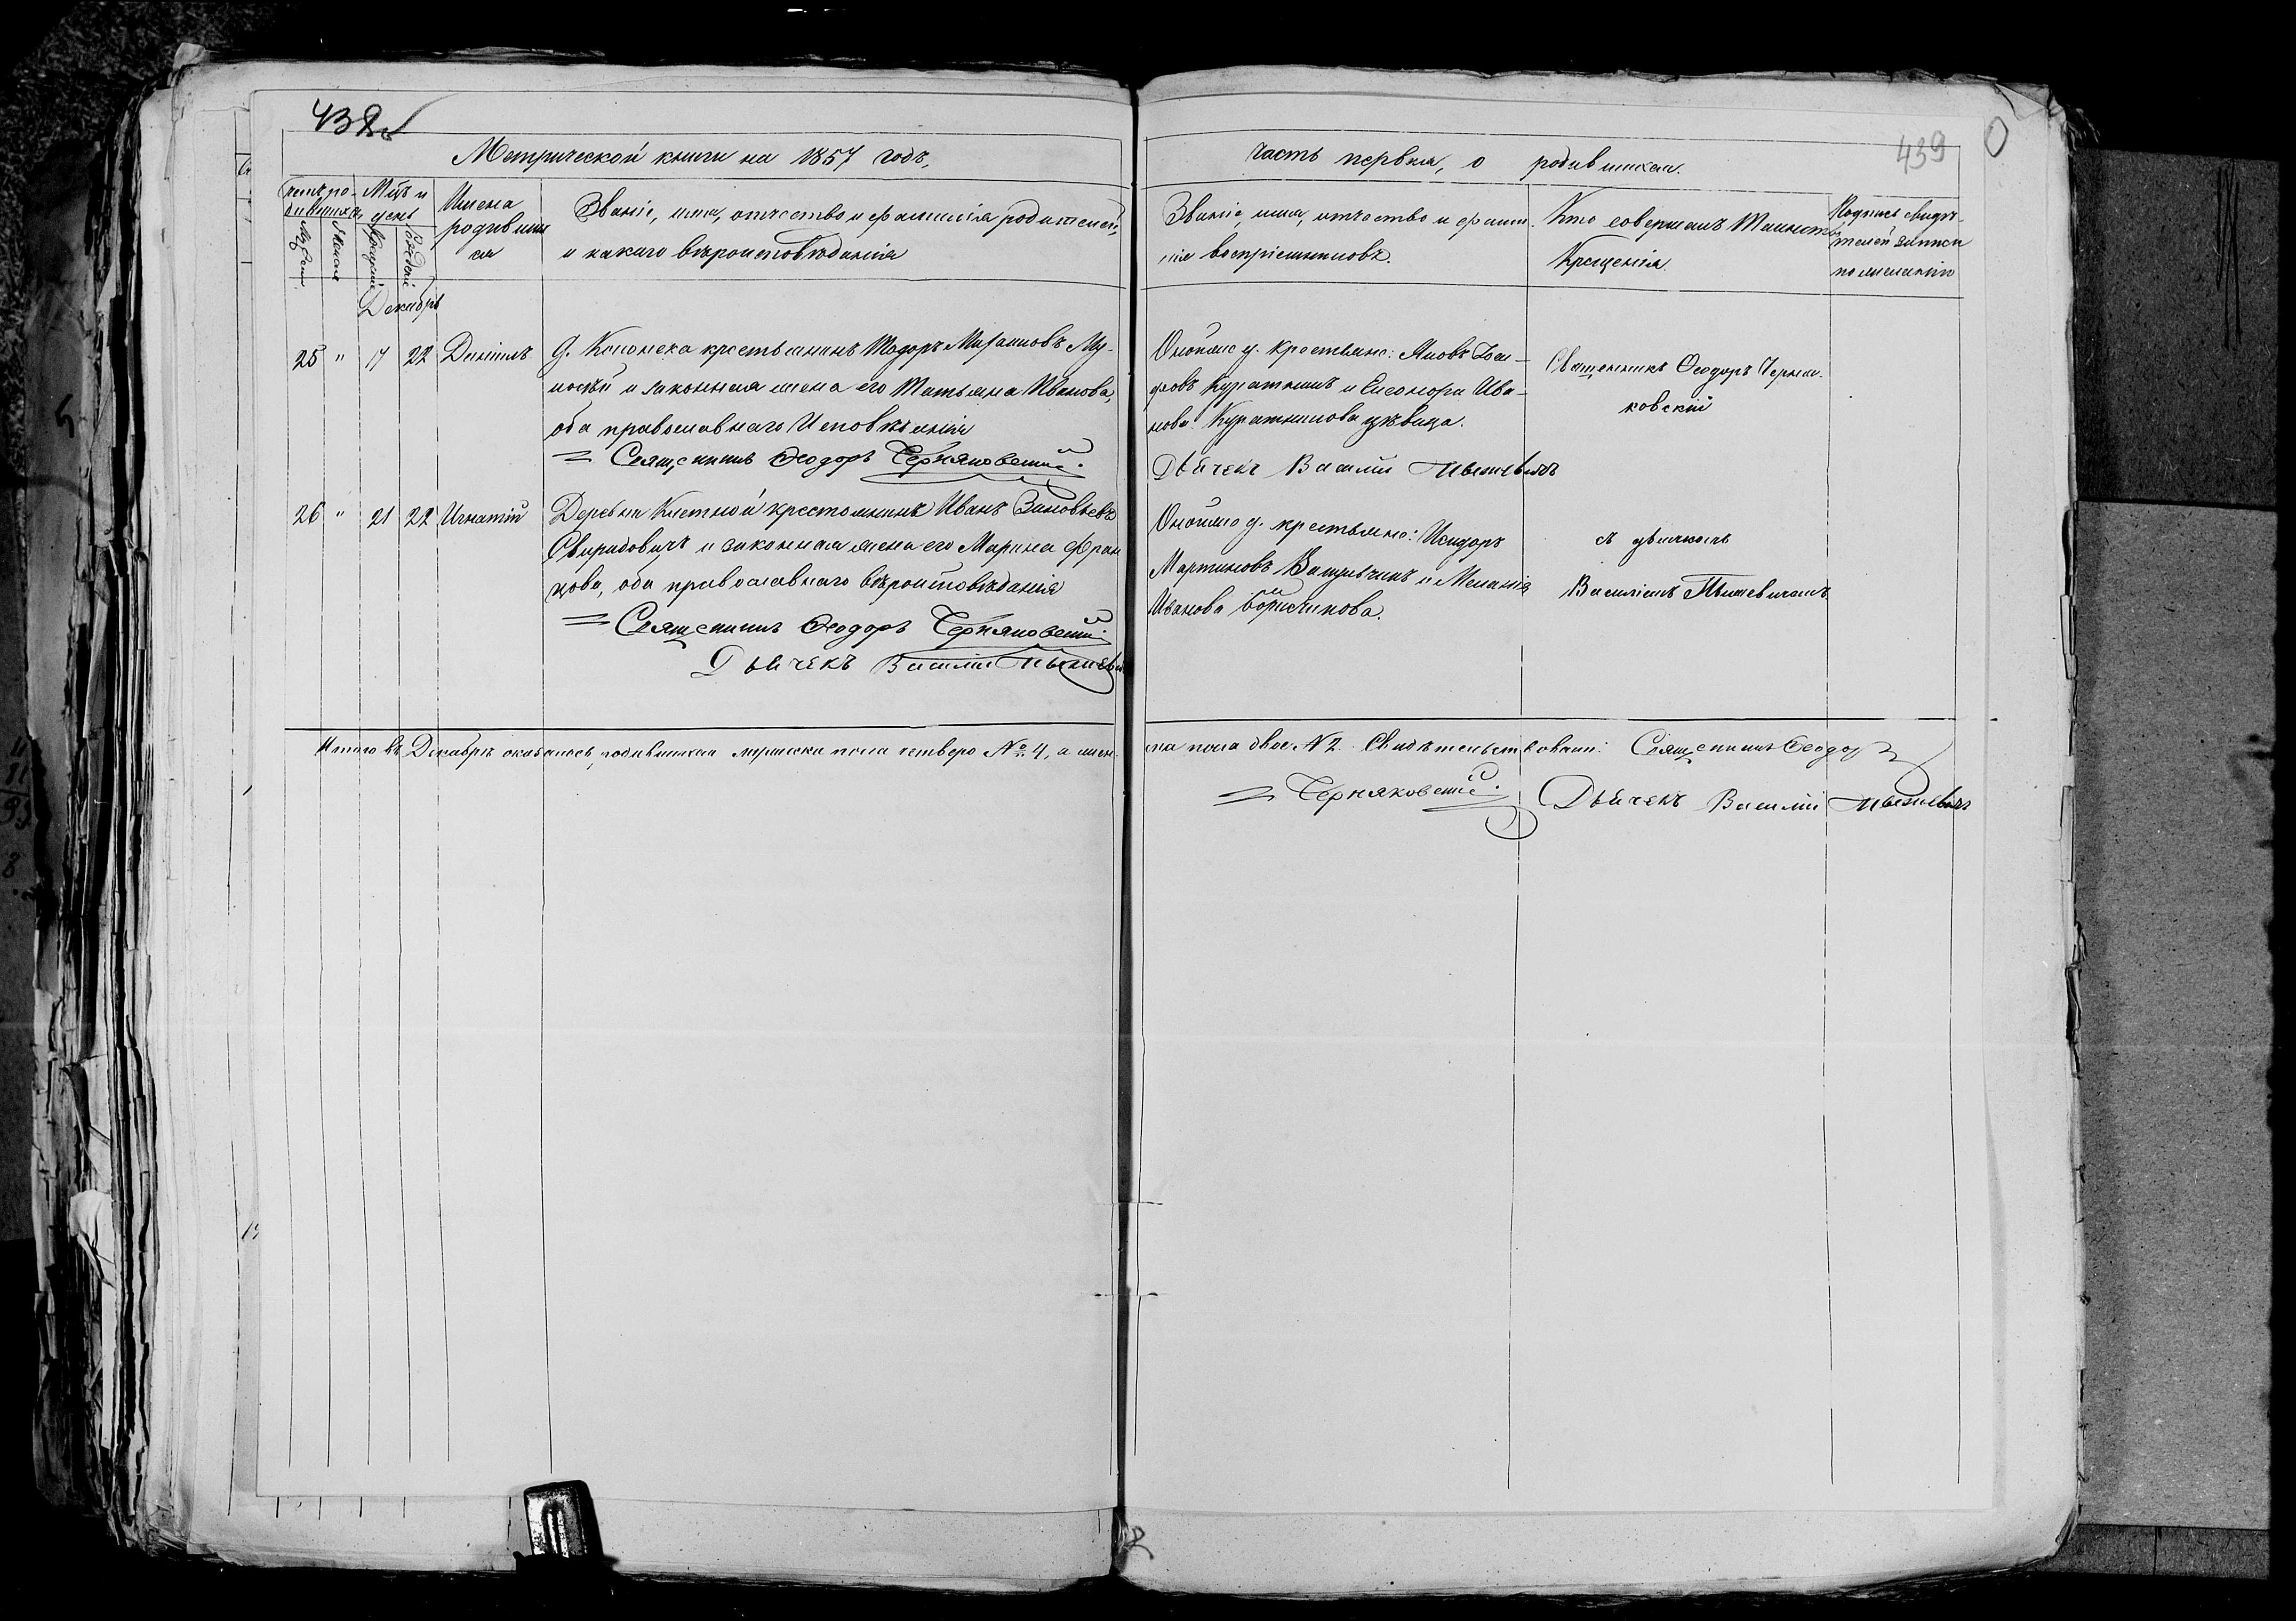 438
439
Метрической книги на 1857 годъ,
часть первая, о родившихся.
Счетъ ро-
дившихся
Мѣц. и
день
Имена
родивших
ся
Званіе, имя, отчество и фамилія родителей
и какаго вѣроисповѣданія
Званіе, имя, отчество и фами
лія воспріемниковъ.
Кто совершалъ Таинство
Крещенія.
Подпись свидѣ-
телей записи
по желанію
Декабрь
25 " 17 22 Даніилъ
д. крестьянинъ Тодоръ
и законная жена его Татьяна Иванова,
оба православнаго Исповѣданія
Священникъ Ѳеодоръ Черняковскій.
Онойже д. крестьяне: Яковъ
и Елеонора Ива-
нова дѣвица.
Дьячекъ Василій
Священникъ Ѳеодоръ Черня-
ковскій
26 " 21 22 Игнатій
Деревни крестьянинъ Иванъ Зиновьевъ
Свиридовичъ и законная жена его Марина Фран
цова, оба православнаго вѣроисповѣданія
Священникъ Ѳеодоръ Черняковскій
Дьячекъ Василій
Онойже д. крестьяне: Исидоръ
Мартиновъ и Меланія
Иванова
съ дьячкомъ
Василіемъ
Итого въ Декабрѣ оказалось родившихся мужеска пола четверо № 4, а жен.
ска пола двое № 2. Свидѣтельствовали: Священникъ Ѳеодоръ
Черняковскій. Дьячекъ Василій